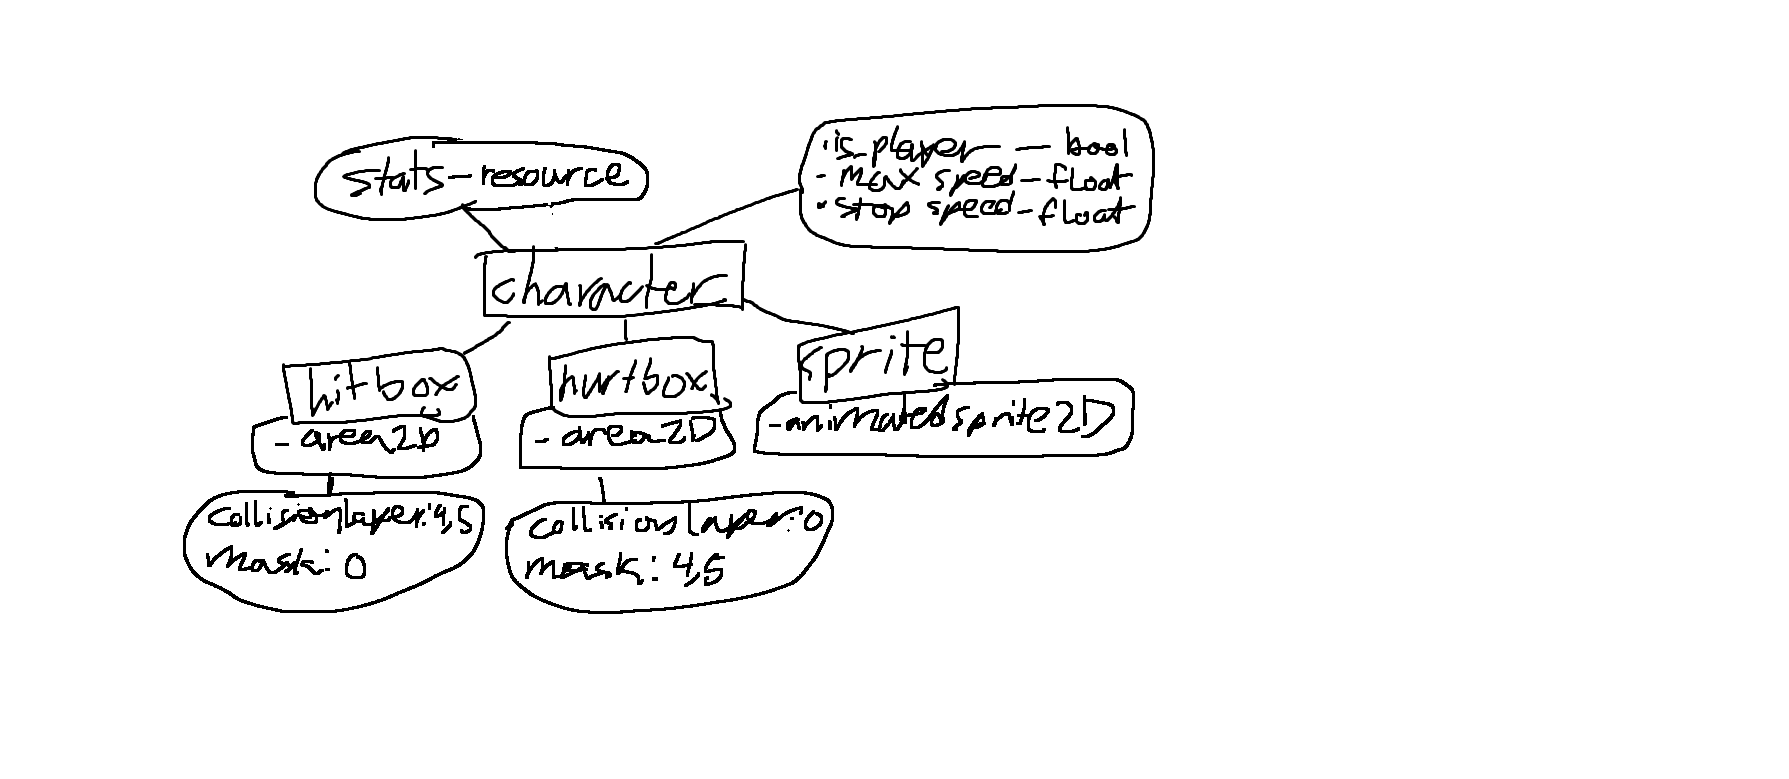 stats-resource
•is_player — bool
- max speed - float
• stop speed - float
character
hitbox
- area2D
collisionlayer:4,5
mask: 0
hurtbox
- area2D
collision layer: 0
mask: 4,5
sprite
-animatedsprite2D